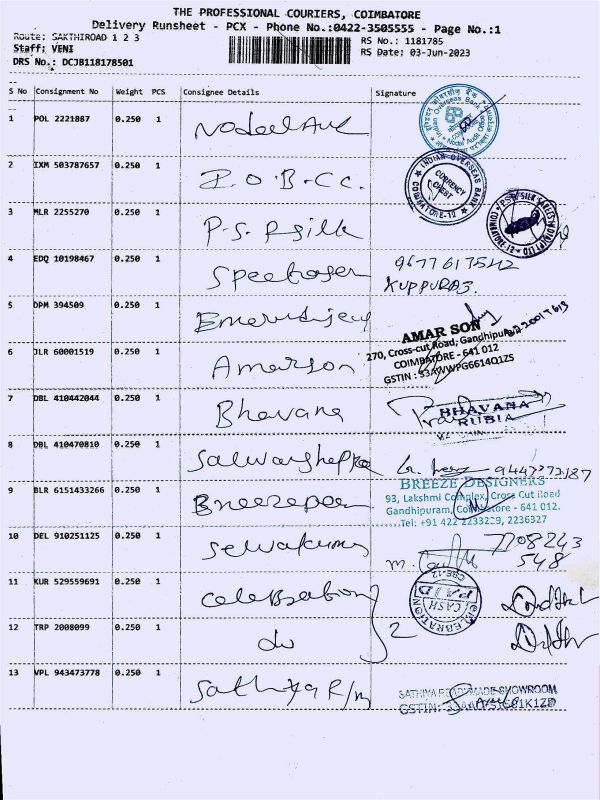 THE PROFESSIONAL COURIERS, COIMBATORE
Delivery Runsheet - PCX - Phone No.:0422-3505555 - Page No.:1
Route: SAKTHIROAD 1 2 3
RS No.: 1181785
Staff: VENI
RS Date; 03-Jun-2023
DRS No.: DCJB118178501
S No Consignment No Weight PCS Consignee Details Signature
1 POL 2221887 0.250 1
INDIAN OVERSEAS BANK
2 IXM 503787657 0.250 1 I.O.B-CC.
INDIAN OVERSEAS BANK
CURRENCY CHEST
COIMBATORE-12
3 MLR 2255270 0.250 1 P.S. Psilk
4 EDQ 10198467 0.250 1
KUPPURAJ.
5 DPM 394509 0.250 1
6 JLR 60001519 0.250 1 Amarson
AMAR SON
270, Cross-cut Road, Gandhipuram
COIMBATORE - 641 012
GSTIN : 33AWWPG6614Q1ZS
7 DBL 410442044 0.250 1 Bhavana
BHAVANA
RUBIA
8 DBL 410470810 0.250 1
9443273187
9 BLR 6151433266 0.250 1
BREEZE DESIGNERS
93, Lakshmi Complex, Cross Cut Road
Gandhipuram, Coimbatore - 641 012.
Tel: +91 422 2233229, 2236327
10 DEL 910251125 0.250 1
7708243
548
11 KUR 529559691 0.250 1 Celebration
CELEBRATION
CASH
PAID
CBE-12
12 TRP 2008099 0.250 1 do 2
13 VPL 943473778 0.250 1 Sathiya R/m
SATHIYA READYMADE SHOWROOM